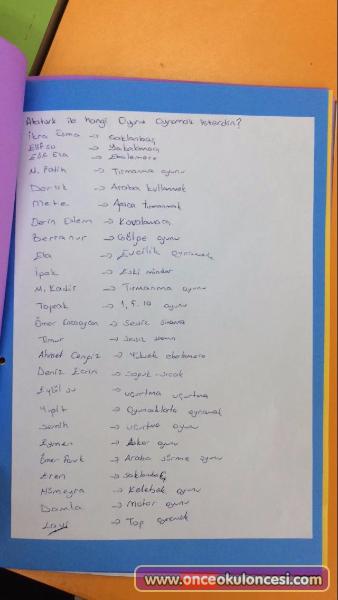 Atatürk ile hangi Oyunu Oynamak isterdin?
İkra Esma → Saklanbaç
Elif su → Yakalamaca
Elif Esa → Ebelemece
N. Fatih → Tırmanma oyunu
Doruk → Araba kullanmak
Mete → Ağaca tırmanmak
Derin Eslem → Kovalamaca
Berranur → Gölge oyunu
Ela → Evcilik oynamak
İpek → Eski minder
M. Kadir → Tırmanma oyunu
Toprak → 1, 5, 10 oyunu
Ömer → Sessiz sinema
Timur → sessiz sinema
Ahmet Cengiz → Yüksek ebelemece
Deniz Ecrin → soğuk-sıcak
Eylül su → uçurtma uçurtma
Yiğit → Oyuncaklarla oynamak
Semih → uçurtma oyunu
Eymen → Asker oyunu
Ömer Faruk → Araba sürme oyunu
Eren → saklanbaç
Hümeyra → Kelebek oyunu
Damla → Motor oyunu
→ Top oynamak
www.onceokuloncesi.com